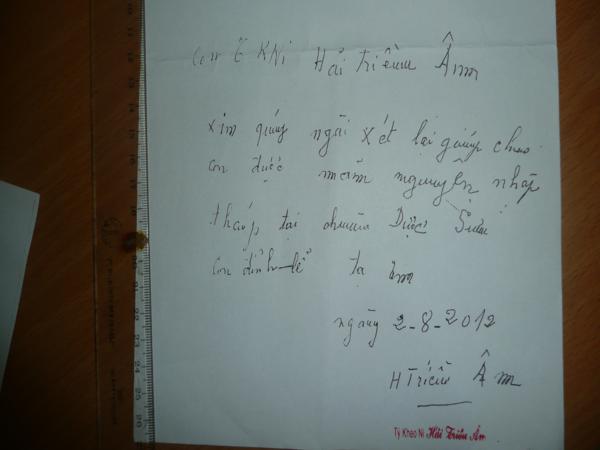 con tỉ kNi Hải Triều Âm
xin quý ngài xét lại giúp cho
con được mãn nguyện nhập
tháp tại chùa Dược Sư
con đỉnh lễ tạ ơn
ngày 2-8-2012
H Triều Âm
Tỳ Kheo Ni Hải Triều Âm